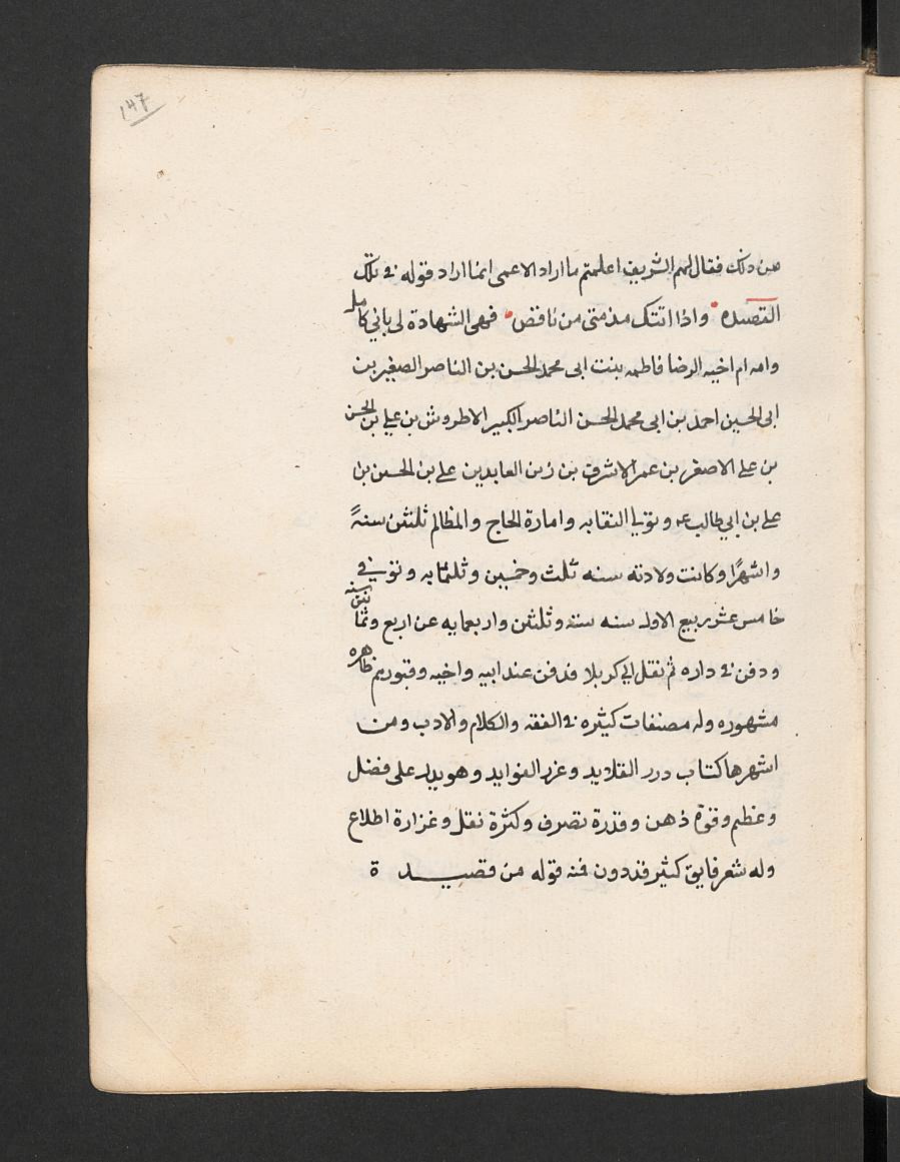 ١٤٧
من ذلك فقال لهم الشريف اعلمتم ما اراد الاعمى انما اراد قوله في تلك
القصيده واذا اتتك مذمتى من ناقص فهى الشهادة لى بانى كامل
وامه ام اخيه الرضا فاطمه بنت ابى محمد الحسن بن الناصر الصغير بن
ابى الحسين احمد بن ابى محمد الحسن الناصر الكبير الاطروش بن علي بن الحسن
بن على الاصغر بن عمر الاشرف بن زين العابدين على بن الحسن بن
على بن ابي طالب ع م وتولى النقابه وامارة الحاج والمظالم ثلثين سنةً
واشهرًا وكانت ولادته سنه ثلث وخمسين وثلثمايه وتوفي في
خامس عشر ربيع الاول سنه سته وثلثين واربعمايه عن اربع وثمانين سنه
ودفن في داره ثم نقل الى كربلا فدفن عند ابيه واخيه وقبورهم ظاهره
مشهوره وله مصنفات كثيره في الفقه والكلام والادب ومن
اشهرها كتاب درر القلايد وغرر الفوايد وهو يدل على فضل
وعظم وقوة ذهن وقدرة تصرف وكثرة نقل وغزارة اطلاع
وله شعر فايق كثير قد دون فمنه قوله من قصيدة